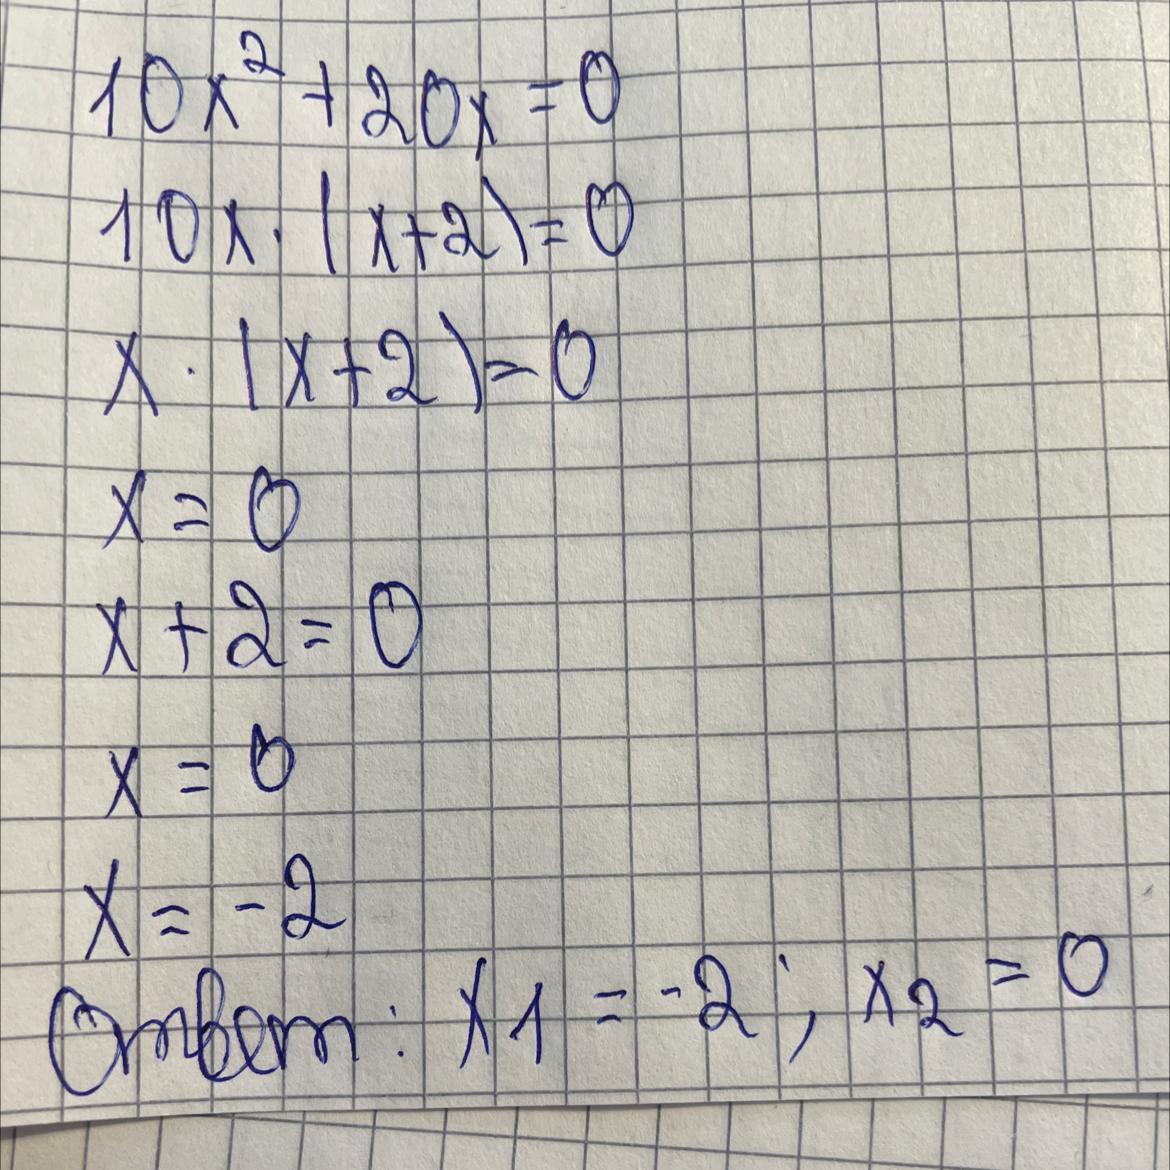 10x² + 20x = 0
10x · (x+2) = 0
x · (x+2) = 0
x = 0
x + 2 = 0
x = 0
x = -2
Ответ: x1 = -2; x2 = 0